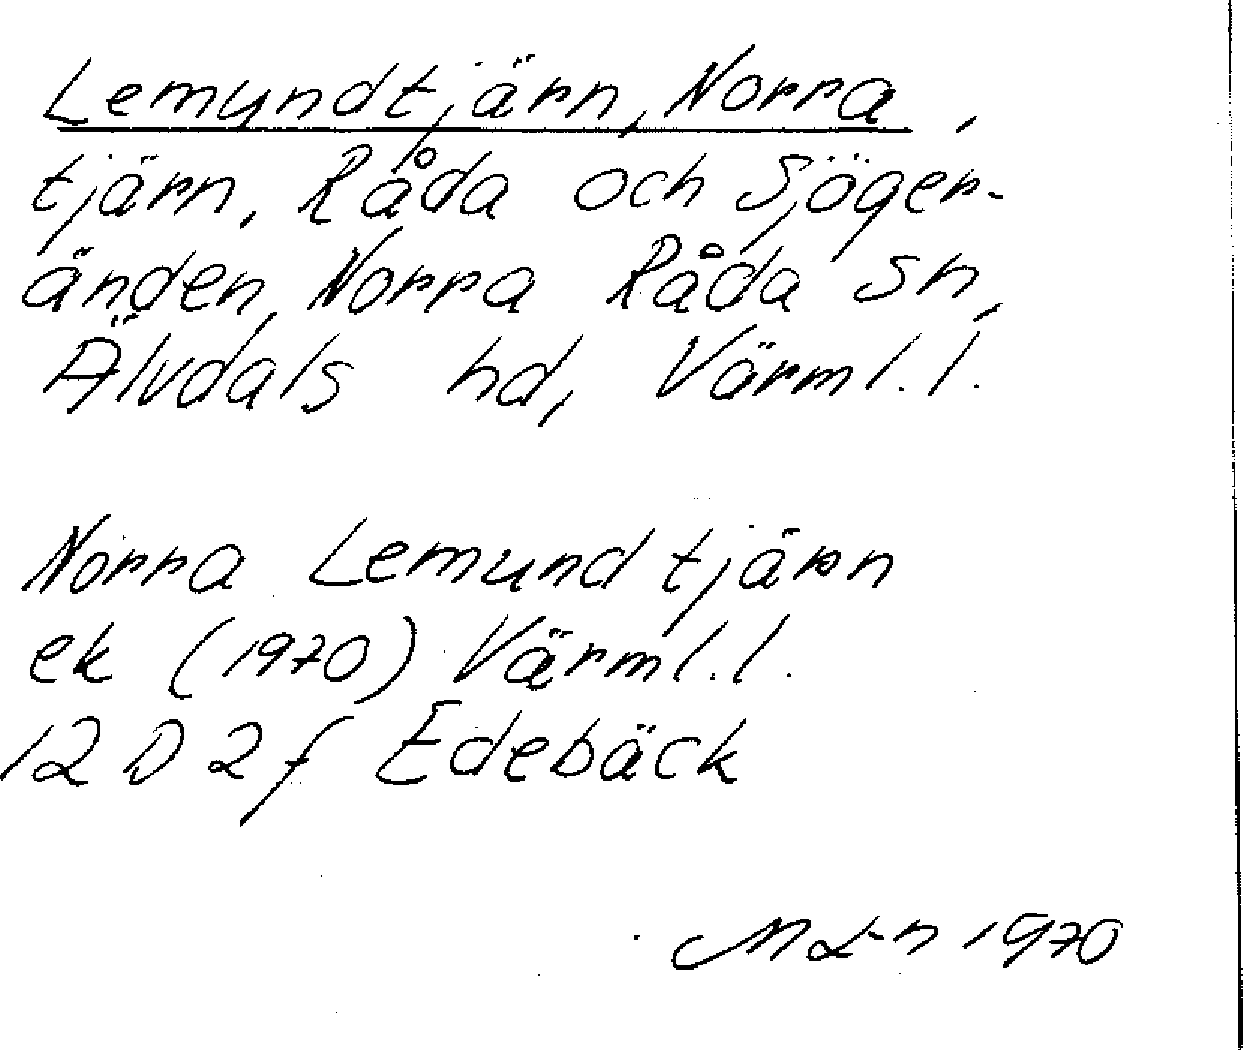 Lemundtjärn, Norra,
tjärn, Råda och Sjöger-
änden, Norra Råda sn,
Älvdals hd, Värml. l.
Norra Lemundtjärn
ek (1970) Värml. l.
12 D 2 f Edebäck
M L-n 1970